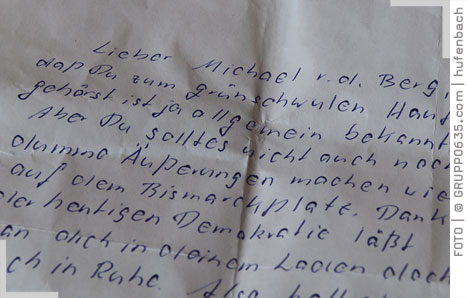 Lieber Michael v.d. Berg,
daß Du zum grünschwulen Hauf
gehörst ist ja allgemein bekannt
Aber Du solltes nicht auch noch
dumme Äußerungen machen wie
auf dem Bismarckplatz. Dank
der heutigen Demokratie läßt
an dich in deinem Laden doch
ch in Ruhe. Also
FOTO | © GRUPPO635.com | hufenbach